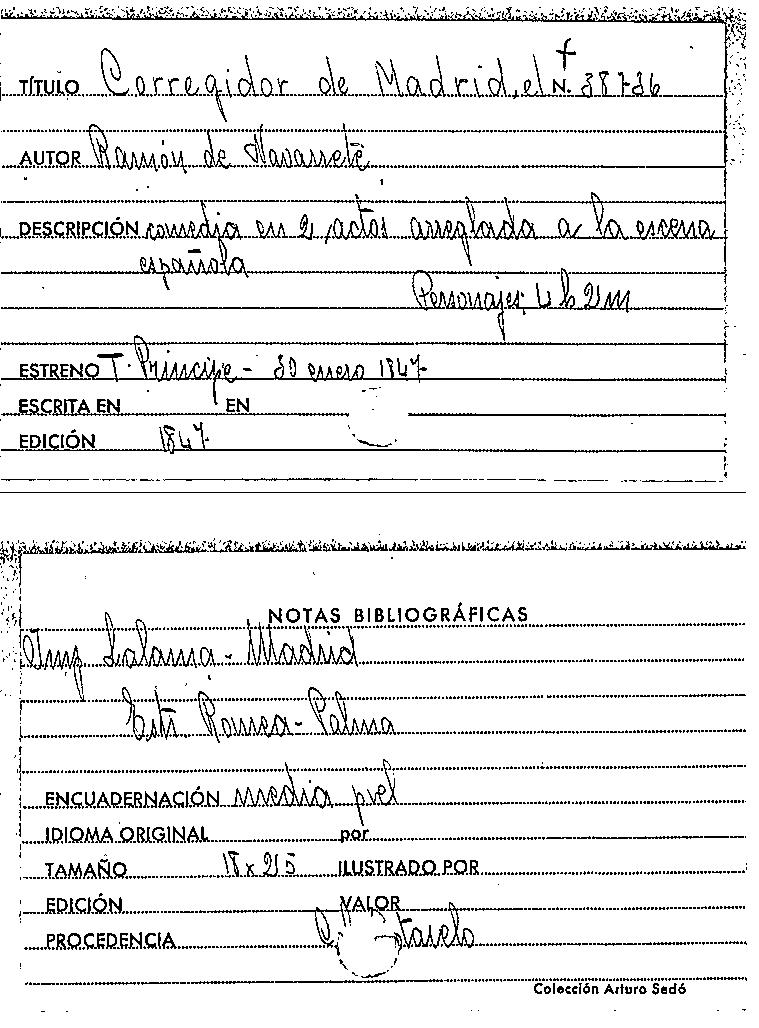 TÍTULO Corregidor de Madrid, el N. 38736
AUTOR Ramón de Navarrete
DESCRIPCIÓN comedia en 2 actos arreglada a la escena
española
Personajes, 4 h 2 m
ESTRENO T. Principe - 30 enero 1847
ESCRITA EN EN
EDICIÓN 1847
NOTAS BIBLIOGRÁFICAS
Imp Lalama - Madrid
Est. Romea - Palma
ENCUADERNACIÓN media piel
IDIOMA ORIGINAL por
TAMAÑO 18 x 215 ILUSTRADO POR
EDICIÓN VALOR
PROCEDENCIA
Colección Arturo Sedó